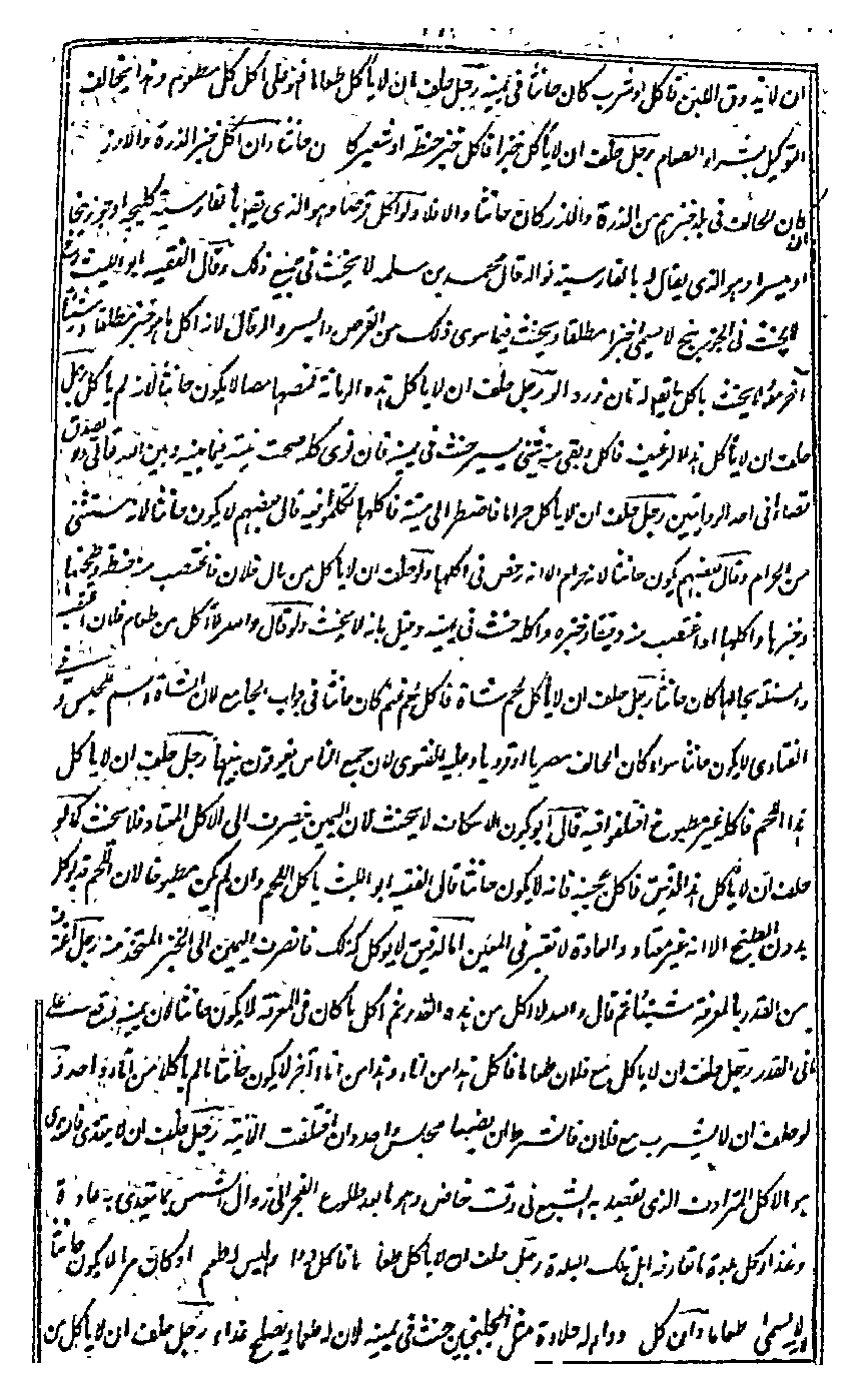 ان لا يذوق اللبن فاكل او شرب كان حانثا فى يمينه رجل حلف ان لا يأكل طعاما فهو على اكل كل مطعوم وهذا يخالف
التوكيل بشراء الطعام رجل حلف ان لا يأكل خبزا فاكل خبز حنطة او شعير كا ن حانثا وان اكل خبز الذرة والارز
كان الحالف فى بلد خبزهم من الذرة والارز كان حانثا والا فلا ولو اكل قرصا وهو الذى يقال بالفارسية كليجه او
او ميسرا وهو الذى يقال له بالفارسية نواله قال محمد بن سلمه لا يحنث فى جميع ذلك وقال الفقيه ابو الليث
لا يحنث فى لا يسمى خبزا مطلقا ويحنث فيما سوى ذلك من القرص والميسر قال لانه اكل خبز مطلقا
آخر معه لا يحنث باكل رجل حلف ان لا ياكل هذه الرمانة فمصها مصا لا يكون حانثا لانه لم يأكل رجل
حلف ان لا يأكل هذا الرغيف فاكل وبقى منه شئ يسير حنث فى يمينه فان نوى كله صحت نيته فيما بينه وبين الله تعالى
قضاء فى احد الروايتين رجل حلف ان لا يأكل حراما فاضطر الى ميتة فاكلها تكلموا فيه قال بعضهم لا يكون حانثا لانه مستثنى
من الحرام وقال بعضهم يكون حانثا لانه حرام الا انه رخص فى اكلها ولو حلف ان لا ياكل من مال فلان فاغتصب منه حنطة وطحنها
وخبزها واكلها او اغتصب منه دقيقا وخبزه واكله حنث فى يمينه وقيل بانه لا يحنث ولو قال والله لا اكل من طعام فلان
والمسئلة بحالها كان حانثا رجل حلف ان لا يأكل لحم شاة فاكل لحم غنم كان حانثا فى جواب الجامع لان الشاة اسم للجنس وفى
الفتاوى لا يكون حانثا سواء كان الحالف مصريا او قرويا وعليه الفتوى لان جميع الناس يفرقون بينها رجل حلف ان لا ياكل
هذا اللحم فاكله غير مطبوخ اختلفوا فيه قال ابو بكر الاسكاف لا يحنث لان اليمين ينصرف الى الاكل المعتاد فلا يحنث كما لو
حلف ان لا يأكل هذا الدقيق فاكل عجينه فانه لا يكون حانثا قال الفقيه ابو الليث ياكل اللحم وان لم يكن مطبوخا لان اللحم قد يوكل
بدون الطبخ الا انه غير معتاد والعادة لا تعتبر فى المعين اما الدقيق لا يوكل كذلك فانصرف اليمين الى الخبز المتخذ منه رجل اغترف
من القدر بالمغرفة شيئا ثم قال والله لا اكل من هذه القدر ثم اكل ما كان فى المغرفة لا يكون حانثا لان يمينه تقع على
ما فى القدر رجل حلف ان لا ياكل مع فلان طعاما فاكل هذا من اناء وهذا من اناء آخر لا يكون حانثا ما لم يأكلا من اناء واحد و
لو حلف ان لا يشرب مع فلان فالشرط ان يضمهما مجلس واحد وان اختلفت الآنية رجل حلف ان لا يتغدى فالغداء
هو الاكل المترادف الذى يقصد به الشبع فى وقت خاص وهو ما بعد طلوع الفجر الى زوال الشمس بما يتغدى به عادة
وغداء كل بلدة ما تعارفه اهل تلك البلدة رجل حلف ان لا يأكل طعا ما فاكل دواء وليس له طعم او كان مرا لا يكون حانثا
لانه لا يسمى طعاما وان كل دواء له حلاوة مثل الجلنجبين حنث فى يمينه لان له طعما ويصلح غذاء رجل حلف ان لا ياكل من